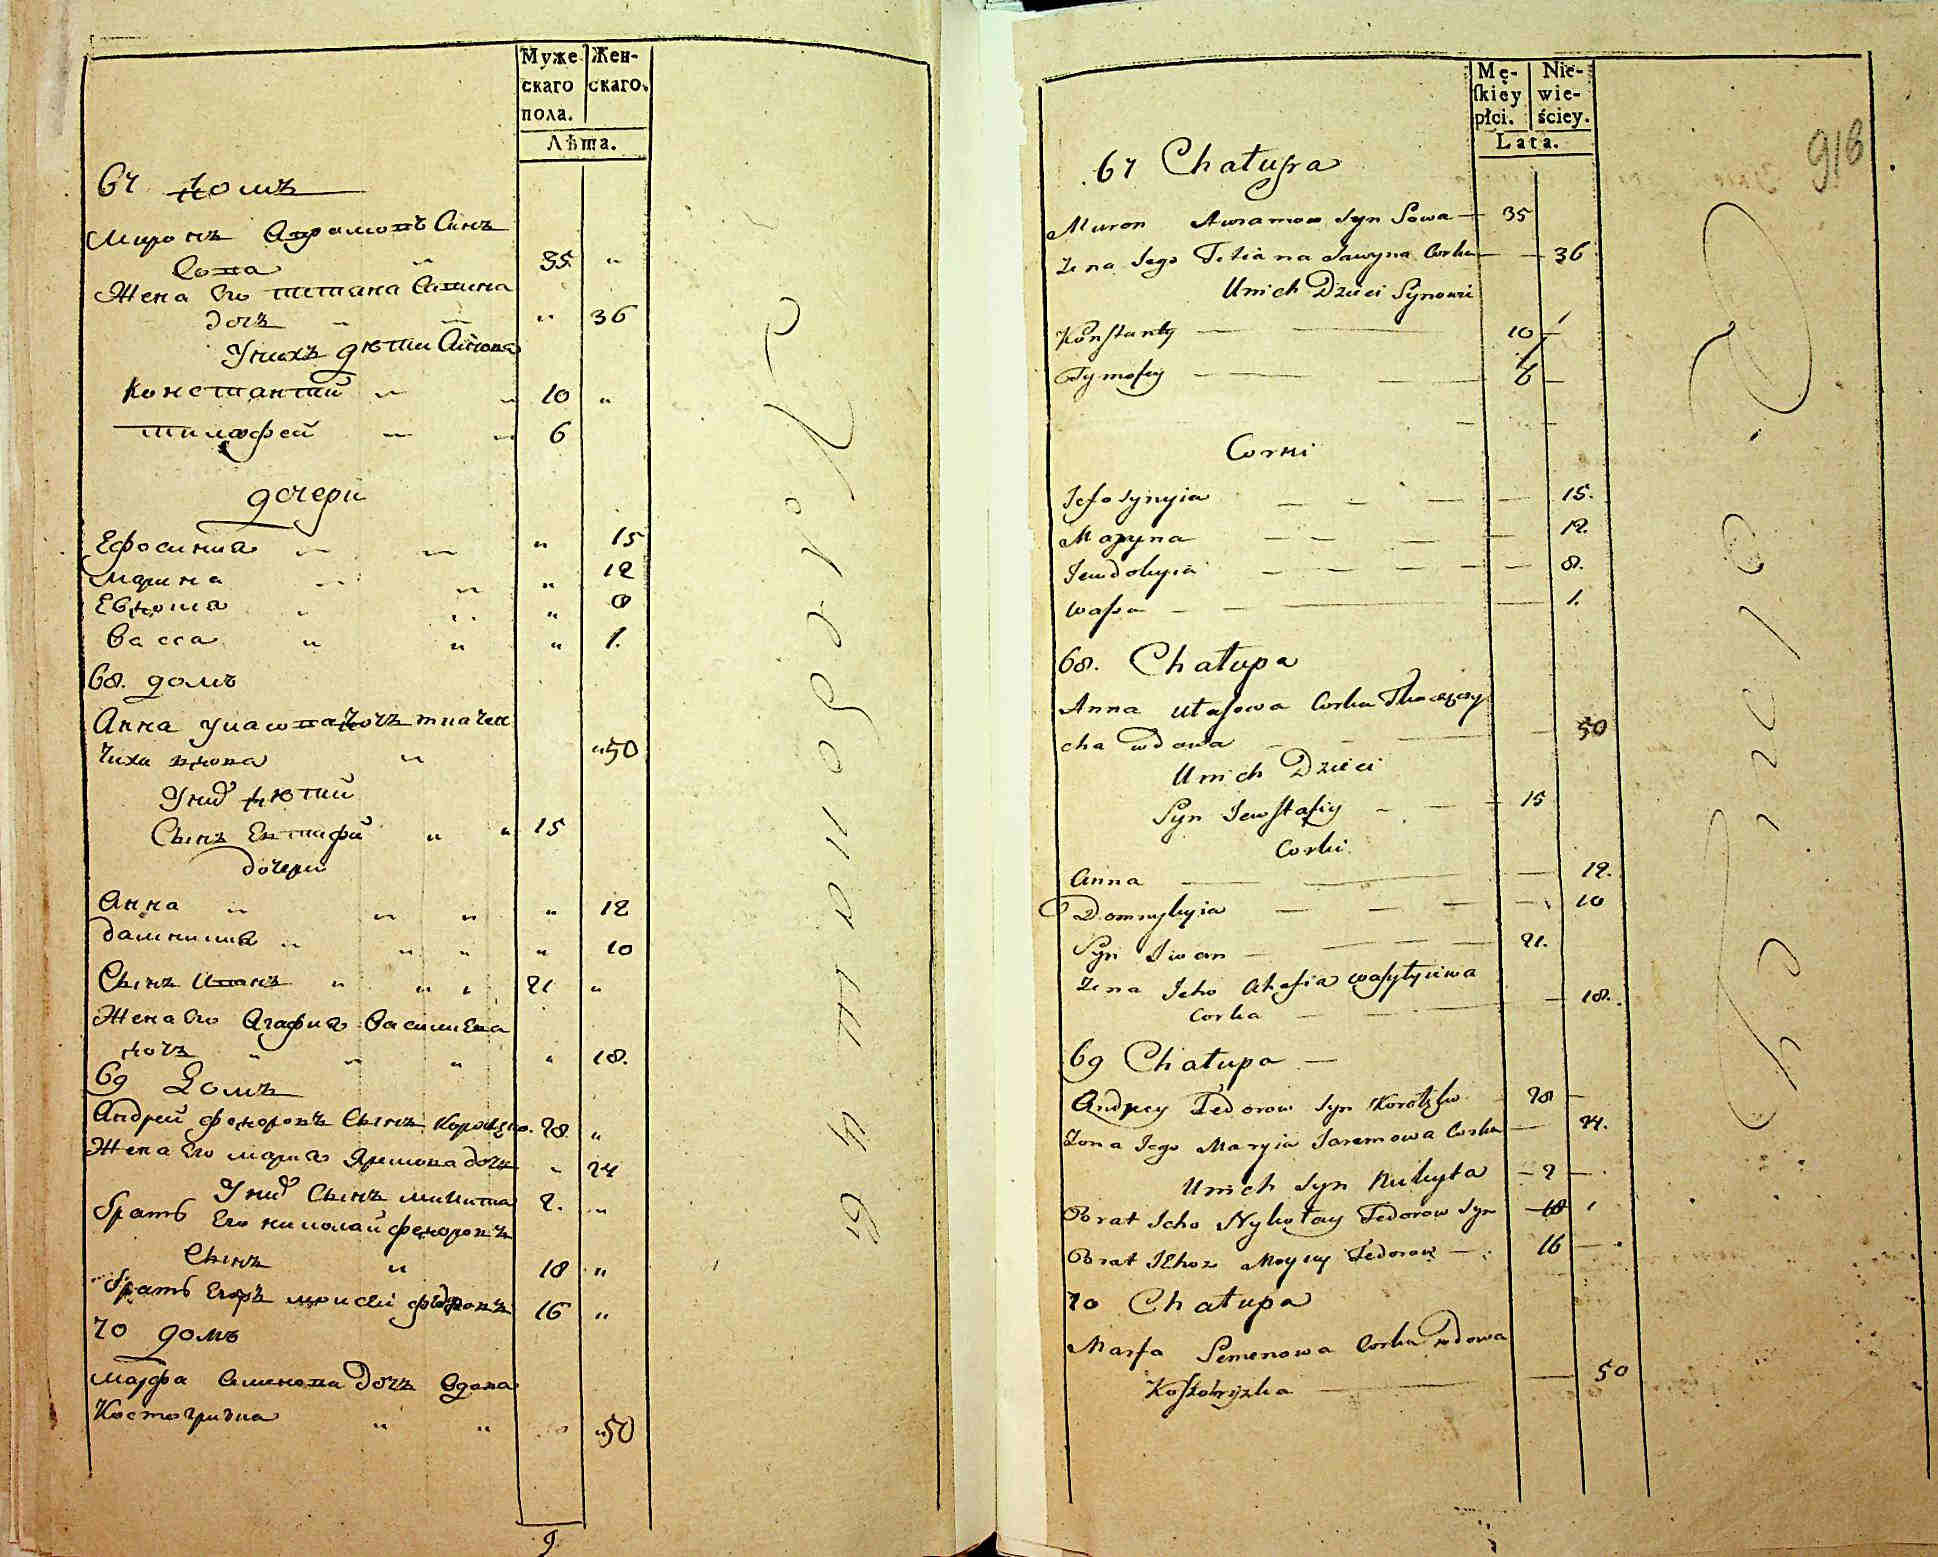 Муже-
скаго
пола.
Жен-
скаго.
Лѣта.
67 домъ
Миронъ Аврамовъ Синъ
Сова " 35 "
Жена Его татиана Савина
дочь " " " 36
Унихъ дѣти Синови
Константий " " 10 "
тимофей " " 6
дочери
Ефосиния " " " 15
Марина " " " 12
Евдокия " " " 8
Васса " " " 1.
68. домъ
Анна Уласова дочь ткачен
чиха вдова " " 50
Унид дѣтий
Сынъ Евстафий " " 15
дочери
Анна " " " " 12
Домникия " " " " 10
Сынъ Иванъ " " " 21 "
Жена Его Агафия Василиева
дочь " " " " 18.
69 Домъ
Андрей Федоровъ Сынъ 28. "
Жена Его Мария Яремова дочь " 24
Унид Сынъ Микита 2. "
Братъ Его николай федоровъ
Сынъ " 18 "
Братъ федоровъ 16 "
70 домъ
Марфа Семенова дочь Вдова
Костогризка " " " 50
9
Mę-
ſkiey
płci.
Nie-
wie-
ściey.
Lata.
918
67 Chałupa
Muron Awramow Syn Sowa — 35
Zena Jego Tetiana Sawyna Corka — — 36
Unich Dzieci Synowie
Konſtanty — — 10 —
Tymofey — — — 6 —
Corki
Jefosynyia — — — — — 15.
Maryna — — — — — 12.
Jewdokyia — — — — — 8.
Waſsa — — — 1.
68. Chałupa
Anna Ułaſowa Corka Tkaczęzy
cha wdowa — — — — 50
Unich Dzieci
Syn Jewſtafiy — — — 15
Corki
Anna — — — 12.
Domnykyia — — — — 10
Syn Iwan — — — 21.
Zena Jeho Ahafia Waſyłyiwa
Corka — — — — 18.
69 Chałupa —
Andrey Fedorow Syn — 28 —
Zona Jego Maryia Jaremowa Corka — 24.
Unich Syn Mikyta — 2 —
Brat Jeho Nykołay Fedorow Syn — 18
Brat Fedorow — 16 —
70 Chałupa
Marfa Semenowa Corka wdowa
Koſtohryzka — — 50